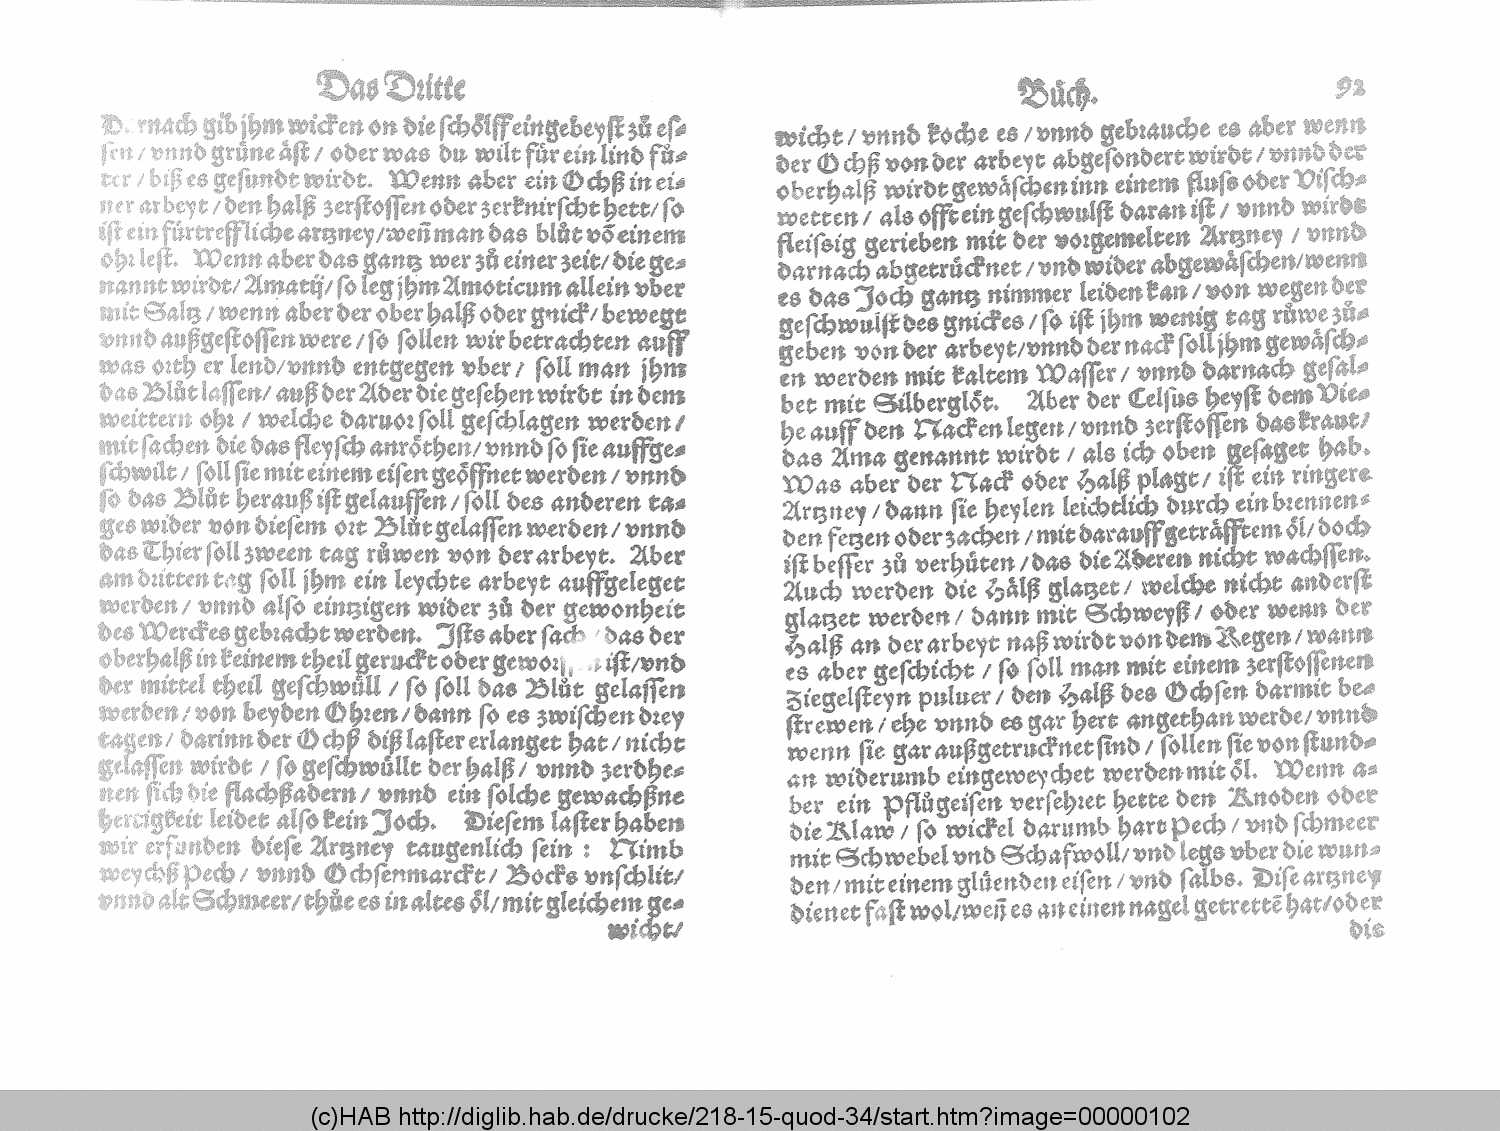 Das Dritte
Darnach gib jhm wicken on die schölff eingebeyst zů es⸗
sen / vnnd grüne äst / oder was du wilt für ein lind fů⸗
ter / biß es gesundt wirdt. Wenn aber ein Ochß in ei⸗
ner arbeyt / den halß zerstossen oder zerknirscht hett / so
ist ein fürtreffliche artzney / weñ man das blůt võ einem
ohr lest. Wenn aber das gantz wer zů einer zeit / die ge⸗
nannt wirdt / Amatij / so leg jhm Amoticum allein vber
mit Saltz / wenn aber der ober halß oder gnick / bewegt
vnnd außgestossen were / so sollen wir betrachten auff
was orth er lend / vnnd entgegen vber / soll man jhm
das Blůt lassen / auß der Ader die gesehen wirdt in dem
weittern ohr / welche daruor soll geschlagen werden /
mit sachen die das fleysch anröthen / vnnd so sie auffge⸗
schwilt / soll sie mit einem eisen geöffnet werden / vnnd
so das Blůt herauß ist gelauffen / soll des anderen ta⸗
ges wider von diesem ort Blůt gelassen werden / vnnd
das Thier soll zween tag růwen von der arbeyt. Aber
am dritten tag soll jhm ein leychte arbeyt auffgeleget
werden / vnnd also eintzigen wider zů der gewonheit
des Werckes gebracht werden. Ists aber sach / das der
oberhalß in keinem theil geruckt oder ist / vnd
der mittel theil geschwüll / so soll das Blůt gelassen
werden / von beyden Ohren / dann so es zwischen drey
tagen / darinn der Ochß diß laster erlanget hat / nicht
gelassen wirdt / so geschwüllt der halß / vnnd zerdhe⸗
nen sich die flachßadern / vnnd ein solche gewachßne
hertigkeit leidet also kein Joch. Diesem laster haben
wir erfunden diese Artzney taugenlich sein : Nimb
weychß Pech / vnnd Ochsenmarckt / Bocks vnschlit /
vnnd alt Schmeer / thůe es in altes öl / mit gleichem ge⸗
wicht /
Bůch. 92
wicht / vnnd koche es / vnnd gebrauche es aber wenn
der Ochß von der arbeyt abgesondert wirdt / vnnd der
oberhalß wirdt gewäschen inn einem fluss oder Visch⸗
wetten / als offt ein geschwulst daran ist / vnnd wirdt
fleissig gerieben mit der vorgemelten Artzney / vnnd
darnach abgetrücknet / vnd wider abgewäschen / wenn
es das Joch gantz nimmer leiden kan / von wegen der
geschwulst des gnickes / so ist jhm wenig tag růwe zů⸗
geben von der arbeyt / vnnd der nack soll jhm gewäsch⸗
en werden mit kaltem Wasser / vnnd darnach gesal⸗
bet mit Silberglöt. Aber der Celsus heyst dem Vie⸗
he auff den Nacken legen / vnnd zerstossen das kraut /
das Ama genannt wirdt / als ich oben gesaget hab.
Was aber der Nack oder Halß plagt / ist ein ringere
Artzney / dann sie heylen leichtlich durch ein brennen⸗
den fetzen oder zachen / mit darauff geträfftem öl / doch
ist besser zů verhüten / das die Aderen nicht wachssen.
Auch werden die Hälß glatzet / welche nicht anderst
glatzet werden / dann mit Schweyß / oder wenn der
Halß an der arbeyt naß wirdt von dem Regen / wann
es aber geschicht / so soll man mit einem zerstossenen
Ziegelsteyn puluer / den Halß des Ochsen darmit be⸗
strewen / ehe vnnd es gar hert angethan werde / vnnd
wenn sie gar außgetrucknet sind / sollen sie von stund⸗
an widerumb eingeweychet werden mit öl. Wenn a⸗
ber ein Pflůgeisen versehret hette den Knoden oder
die Klaw / so wickel darumb hart Pech / vnd schmeer
mit Schwebel vnd Schafwoll / vnd legs vber die wun⸗
den / mit einem glüenden eisen / vnd salbs. Dise artzney
dienet fast wol / weñ es an einen nagel getrettẽ hat / oder
die
(c)HAB http://diglib.hab.de/drucke/218-15-quod-34/start.htm?image=00000102